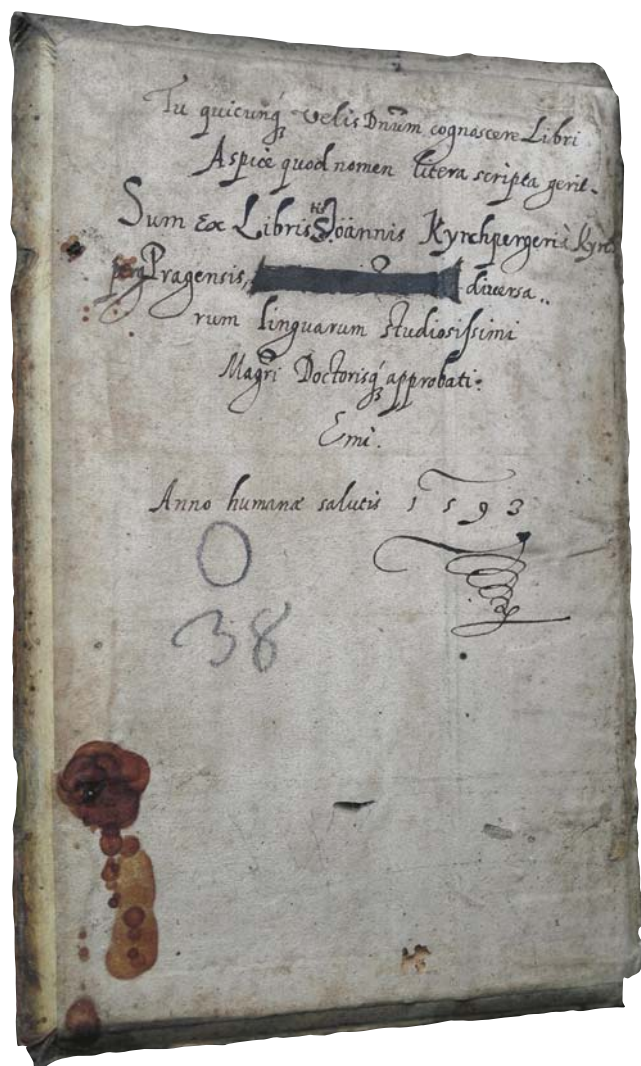 Tu quicunq́ꝫ velis Dn̄um cognoscere Libri
Aspice quod nomen litera scripta gerit.
Sum Ex Libris Joannis Kyrchpergeri à Kyrch
perg Pragensis, diversa..
rum linguarum studiosissimi
Mag̃ri Doctorisq́ꝫ approbati:
Emi.
Anno humanæ salutis 1593
O
38